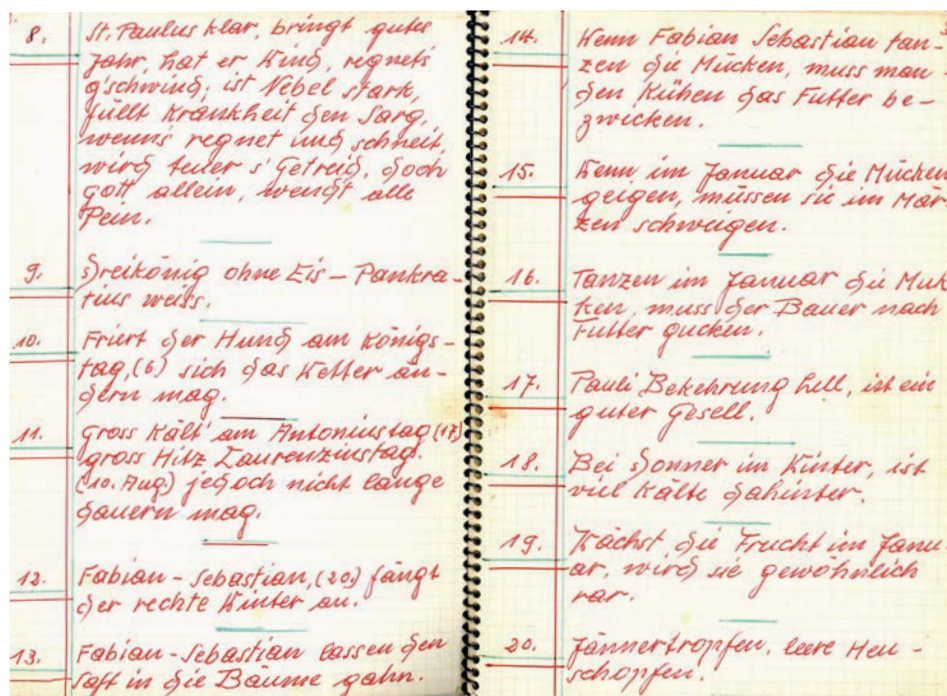 8. St. Paulus klar, bringt gutes
Jahr, hat er Wind, regnets
g'schwind; ist Nebel stark,
füllt Krankheit den Sarg,
wenn's regnet und schneit,
wird teuer s' Getreid, doch
Gott allein, wendt alle
Pein.
9. Dreikönig ohne Eis – Pankra-
tius weiss.
10. Friert der Hund am Königs-
tag, (6) sich das Wetter än-
dern mag.
11. Gross Kält' am Antoniustag (17)
gross Hitz Laurenzinstag.
(10. Aug) jedoch nicht lange
dauern mag.
12. Fabian-Sebastian, (20) fängt
der rechte Winter an.
13. Fabian-Sebastian lassen den
Saft in die Bäume gahn.
14. Wenn Fabian Sebastian tan-
zen die Mücken, muss man
den Kühen das Futter be-
zwicken.
15. Wenn im Januar die Mücken
geigen, müssen sie im Mär-
zen schweigen.
16. Tanzen im Januar die Muk-
ken, muss der Bauer nach
Futter gucken.
17. Pauli Bekehrung hell, ist ein
guter Gesell.
18. Bei Donner im Winter, ist
viel Kälte dahinter.
19. Wächst die Frucht im Janu-
ar, wird sie gewöhnlich
rar.
20. Jännertropfen, leere Heu-
schopfen.